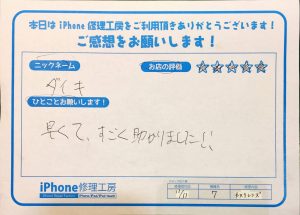 本日は iPhone 修理工房をご利用頂きありがとうございます!
ご感想をお願いします!
ニックネーム
お店の評価 ☆☆☆☆☆
ダイキ
ひとことお願いします!
早くて、すごく助かりました!!
iPhone修理工房
機種
7